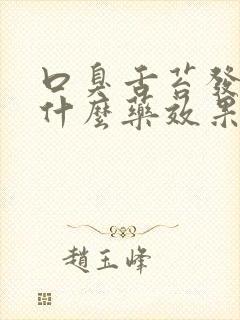 口臭舌苔發
什麼藥效果
趙玉峰